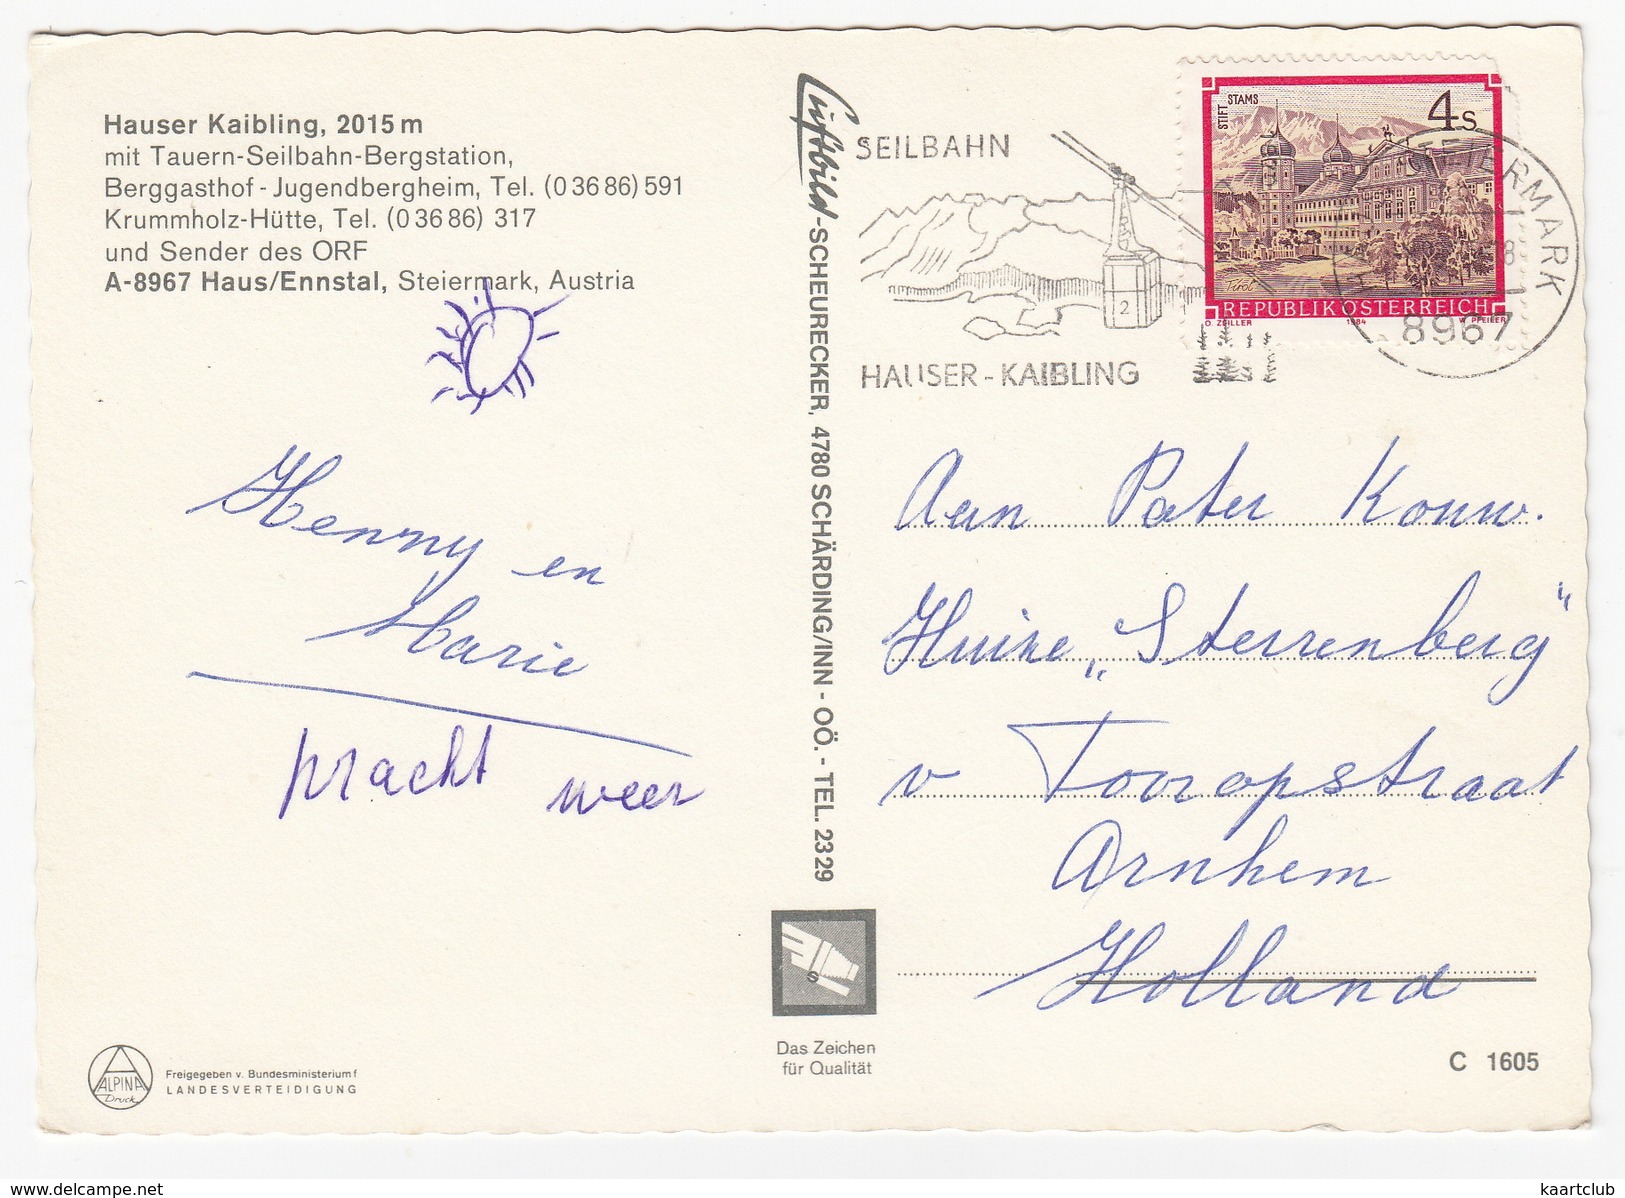 Hauser Kaibling, 2015 m
mit Tauern-Seilbahn-Bergstation,
Berggasthof - Jugendbergheim, Tel. (0 36 86) 591
Krummholz-Hütte, Tel. (0 36 86) 317
und Sender des ORF
A-8967 Haus/Ennstal, Steiermark, Austria
Henny en
Marie
pracht weer
ALPINA
Druck
Freigegeben v. Bundesministerium f
LANDESVERTEIDIGUNG
Luftbild-SCHEURECKER, 4780 SCHÄRDING/INN - OÖ. - TEL. 23 29
S
Das Zeichen
für Qualität
SEILBAHN
2
HAUSER-KAIBLING
STIFT STAMS
4 S
Tirol
REPUBLIK ÖSTERREICH
O. ZEILLER 1984 W. PFEILER
STEIERMARK
8967
Aan Pater Konw.
Huize „Sterrenberg"
v Tooropstraat
Arnhem
Holland
C 1605
www.delcampe.net
kaartclub